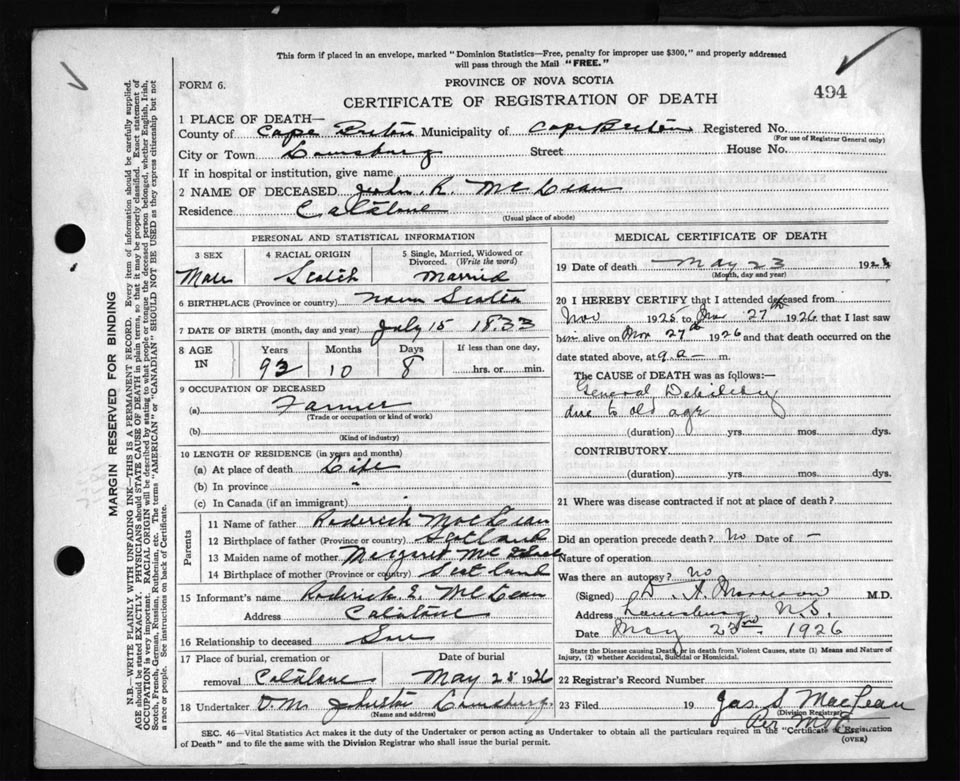 This form if placed in an envelope, marked "Dominion Statistics—Free, penalty for improper use $300," and properly addressed
will pass through the Mail "FREE."
FORM 6.
PROVINCE OF NOVA SCOTIA
494
CERTIFICATE OF REGISTRATION OF DEATH
1 PLACE OF DEATH—
County of Cape Breton Municipality of Cape Breton Registered No.
(For use of Registrar General only)
City or Town Louisburg Street House No.
If in hospital or institution, give name
2 NAME OF DECEASED John R. McLean
Residence Catalone
(Usual place of abode)
PERSONAL AND STATISTICAL INFORMATION
3 SEX 4 RACIAL ORIGIN 5 Single, Married, Widowed or Divorced. (Write the word)
Male Scotch Married
6 BIRTHPLACE (Province or country) Nova Scotia
7 DATE OF BIRTH (month, day and year) July 15 1833
8 AGE IN Years Months Days If less than one day.
92 10 8 hrs. or min.
9 OCCUPATION OF DECEASED
(a) Farmer
(Trade or occupation or kind of work)
(b)
(Kind of industry)
10 LENGTH OF RESIDENCE (in years and months)
(a) At place of death Life
(b) In province "
(c) In Canada (if an immigrant)
Parents
11 Name of father Roderick MacLean
12 Birthplace of father (Province or country) Scotland
13 Maiden name of mother Margaret Mc
14 Birthplace of mother (Province or country) Scotland
15 Informant's name Roderick E. McLean
Address Catalone
16 Relationship to deceased Son
17 Place of burial, cremation or removal Catalone
Date of burial May 28 1926
18 Undertaker D. M. Johnston Louisburg.
(Name and address)
MEDICAL CERTIFICATE OF DEATH
19 Date of death May 23 1926
(Month, day and year)
20 I HEREBY CERTIFY that I attended deceased from
Nov 1925 to 27th 1926 that I last saw
him alive on 27th 1926 and that death occurred on the
date stated above, at 9 a m.
The CAUSE of DEATH was as follows:—
General Debility
due to old age
(duration) yrs. mos. dys.
CONTRIBUTORY.
(duration) yrs. mos. dys.
21 Where was disease contracted if not at place of death?
Did an operation precede death? No Date of —
Nature of operation
Was there an autopsy? No
(Signed) D. A. Morrison M.D.
Address Louisburg N.S.
Date May 23rd 1926
State the Disease causing Death, or in death from Violent Causes, state (1) Means and Nature of
Injury, (2) whether Accidental, Suicidal or Homicidal.
22 Registrar's Record Number
23 Filed 19 Jas. S. MacLean
(Division Registrar)
Per
SEC. 46—Vital Statistics Act makes it the duty of the Undertaker or person acting as Undertaker to obtain all the particulars required in the "Certificate of Registration
of Death" and to file the same with the Division Registrar who shall issue the burial permit.
(OVER)
MARGIN RESERVED FOR BINDING
N.B.—WRITE PLAINLY WITH UNFADING INK—THIS IS A PERMANENT RECORD. Every item of information should be carefully supplied.
AGE should be stated EXACTLY. PHYSICIANS should STATE CAUSE OF DEATH in plain terms, so that it may be properly classified. Exact statement of
OCCUPATION is very important. RACIAL ORIGIN will be described by stating to what people or tongue the deceased person belonged, whether English, Irish,
Scotch, French, German, Russian, Ruthenian, etc. The terms "AMERICAN" or "CANADIAN" SHOULD NOT BE USED as they express citizenship but not
a race or people. See instructions on back of Certificate.